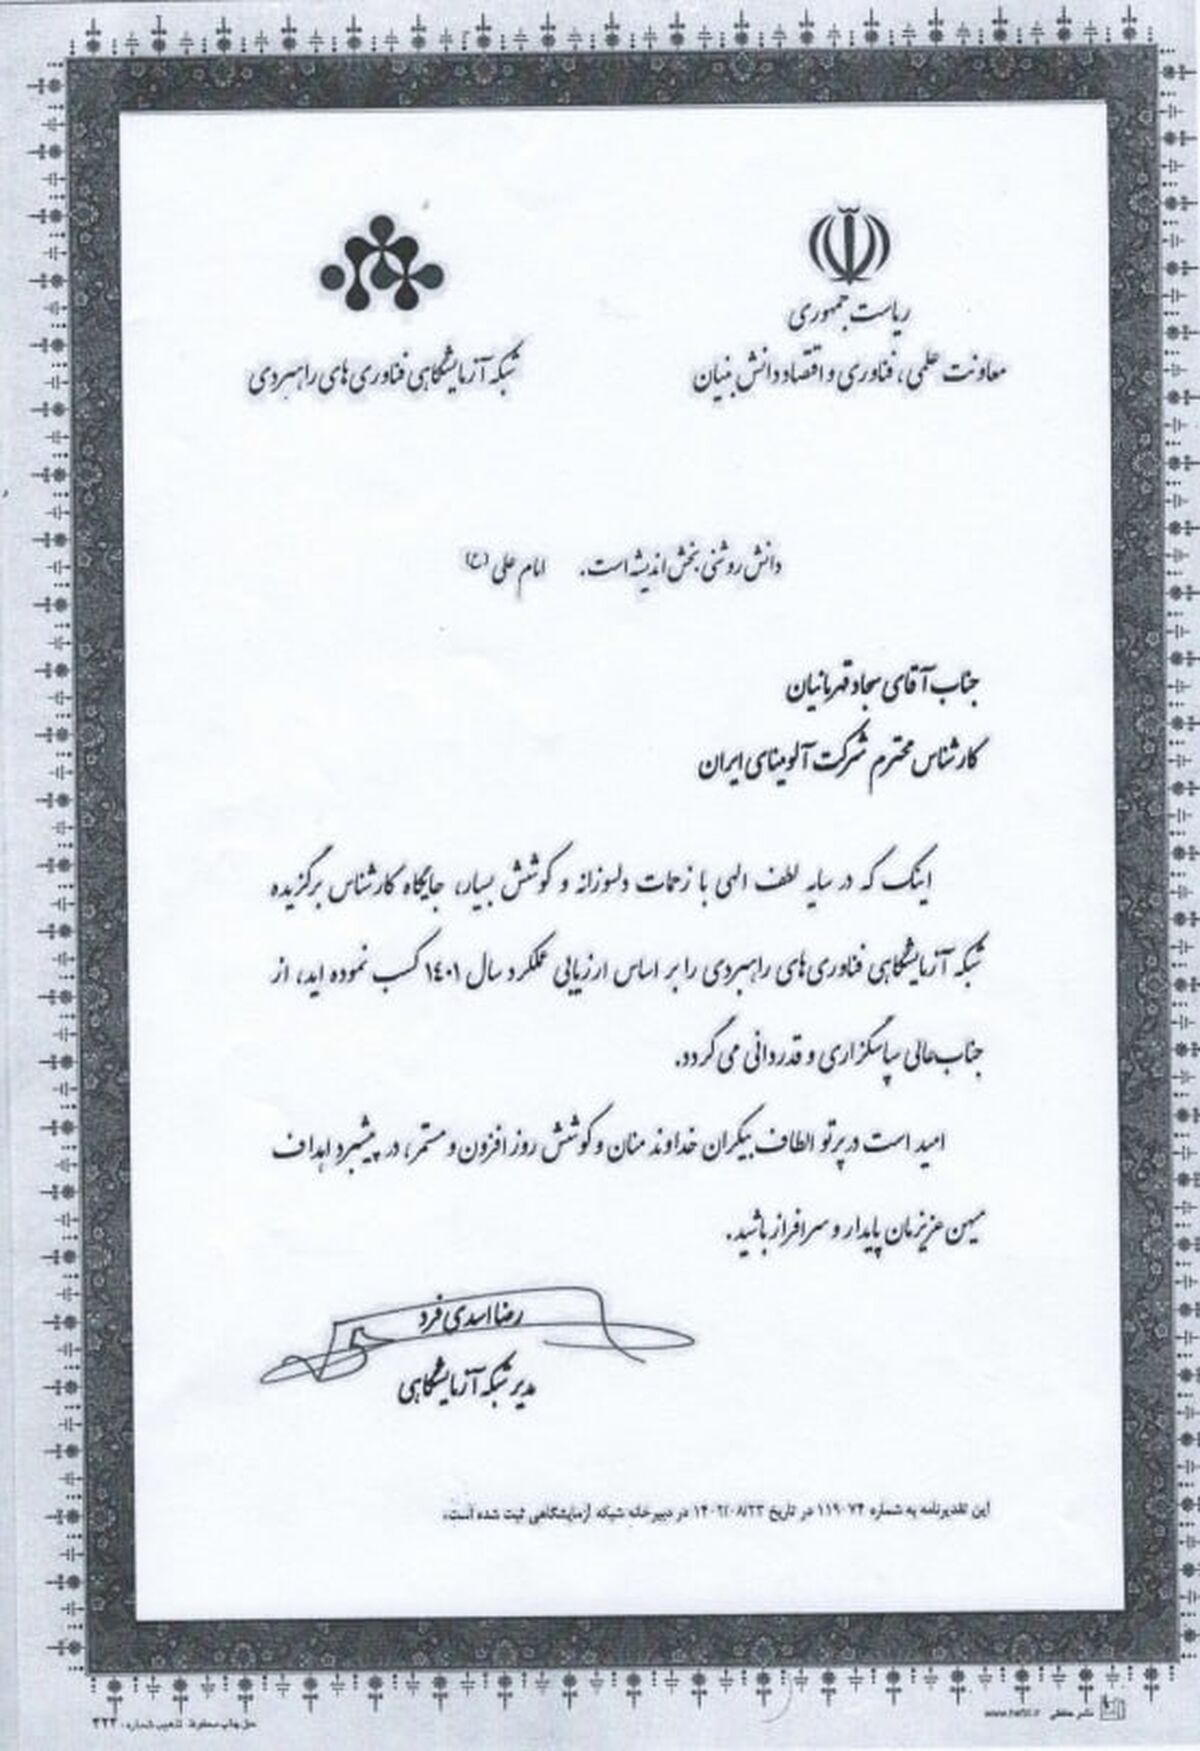 ریاست جمهوری
معاونت علمی، فناوری و اقتصاد دانش بنیان
شبکه آزمایشگاهی فناوری های راهبردی
دانش روشنی بخش اندیشه است. امام علی (ع)
جناب آقای سجاد قهرمانیان
کارشناس محترم شرکت آلومینای ایران
اینک که در سایه لطف الهی با زحمات دلسوزانه و کوشش بسیار، جایگاه کارشناس برگزیده
شبکه آزمایشگاهی فناوری های راهبردی را بر اساس ارزیابی عملکرد سال ۱۴۰۱ کسب نموده اید، از
جناب عالی سپاسگزاری و قدردانی می گردد.
امید است در پرتو الطاف بیکران خداوند منان و کوشش روز افزون و مستمر، در پیشبرد اهداف
میهن عزیزمان پایدار و سرافراز باشید.
رضا اسدی فرد
مدیر شبکه آزمایشگاهی
این تقدیرنامه به شماره ۱۱۹۰۷۴ در تاریخ ۱۴۰۲/۰۸/۲۳ در دبیرخانه شبکه آزمایشگاهی ثبت شده است.
حق چاپ محفوظ تذهیب شماره: ۳۲۳
نشر حافظی